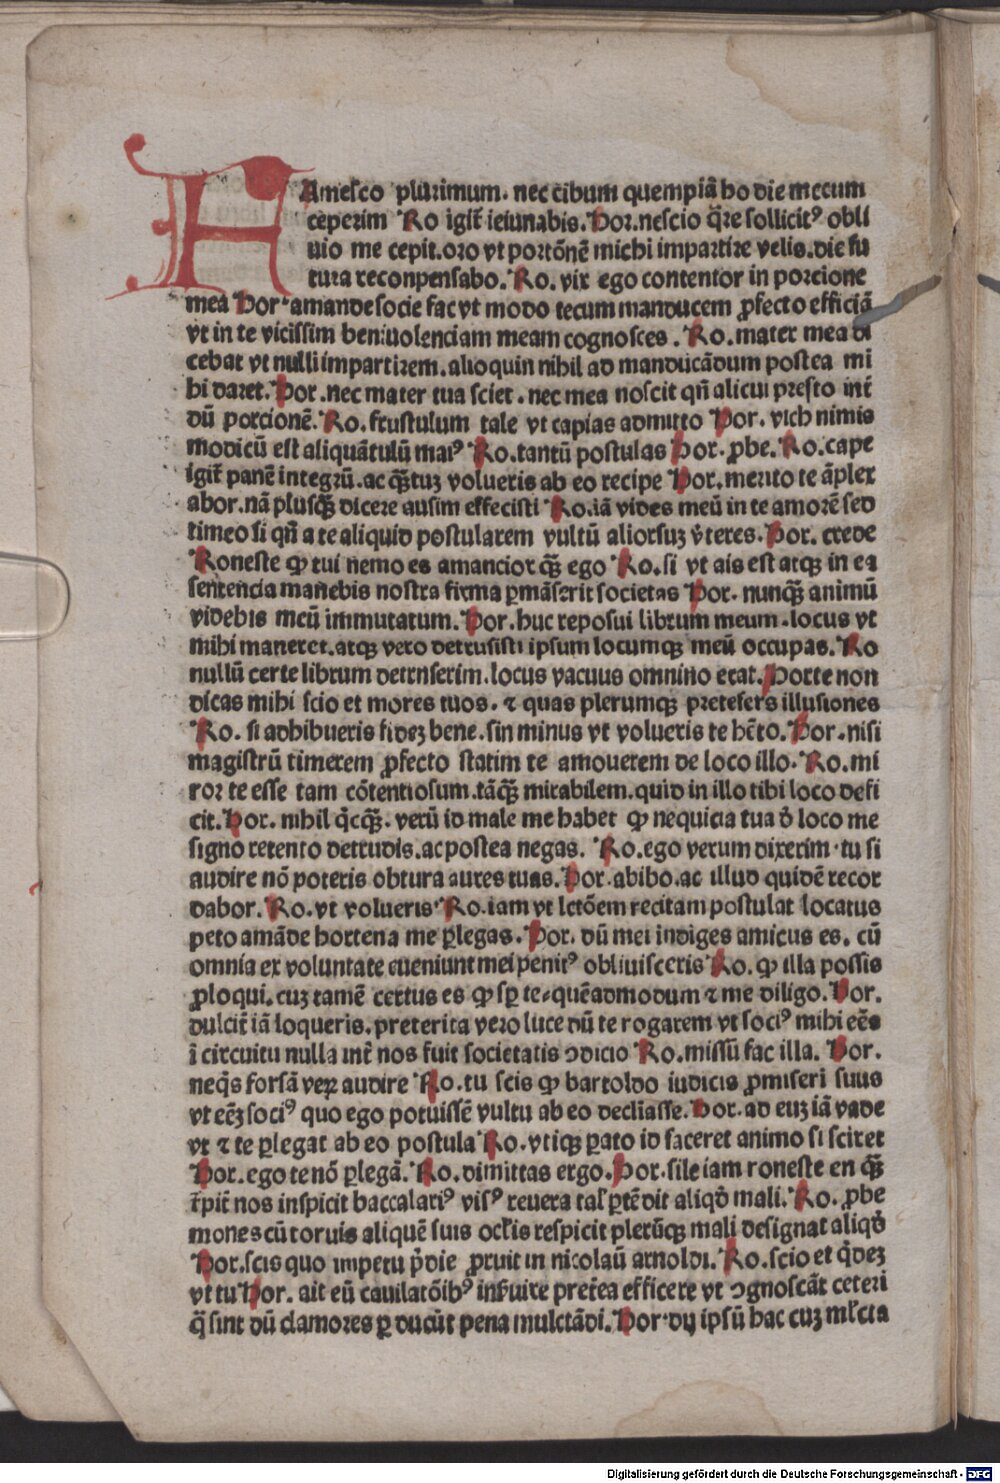 HAmesco plurimum. nec cibum quempiā ho die mecum
ceperim Ro igit̄ ieiunabis. Hor. nescio q̄re sollicitꝰ obli
uio me cepit. oro vt portōnē michi impartire velis. die fu
tura reconpensabo. Ro. vix ego contentor in porcione
mea Hor. amande socie fac vt modo tecum manducem ꝓfecto efficiā
vt in te vicissim beniuolenciam meam cognosces. Ro. mater mea di
cebat vt nulli impartirem. alioquin nihil ad manducādum postea mi
hi daret. Hor. nec mater tua sciet. nec mea noscit qn̄ alicui presto int̄
dū porcionē. Ro. frustulum tale vt capias admitto Hor. vich nimis
modicū est aliquātulū maiꝰ Ro. tantū postulas Hor. ꝓbe. Ro. cape
igit̄ panē integrū. ac q̄ꝫtuꝫ volueris ab eo recipe Hor. merito te āplex
abor. nā plusq̄ꝫ dicere ausim effecisti Ro. iā vides meū in te amorē sed
timeo si qn̄ a te aliquid postularem vultū aliorsuꝫ v̓teres. Hor. crede
Roneste ꝙ tui nemo es amancior q̄ꝫ ego Ro. si vt ais est atqꝫ in ea
sentencia manebis nostra firma ꝑmāserit societas Hor. nunq̄ꝫ animū
videbis meū immutatum. Hor. huc reposui librum meum. locus vt
mihi maneret. atqꝫ vero detrusisti ipsum locumqꝫ meū occupas. Ro
nullū certe librum detruserim. locus vacuus omnino erat. Horte non
dicas mihi scio et mores tuos. ⁊ quas plerumqꝫ pretefers illusiones
Ro. si adhibueris fideꝫ bene. sin minus vt volueris te hēto. Hor. nisi
magistrū timerem ꝓfecto statim te amouerem de loco illo. Ro. mi
ror te esse tam cōtentiosum. tāq̄ꝫ mirabilem. quid in illo tibi loco defi
cit. Hor. nihil q̇cq̄ꝫ. verū id male me habet ꝙ nequicia tua d̓ loco me
signo retento detrudis. ac postea negas. Ro. ego verum dixerim. tu si
audire nō poteris obtura aures tuas. Hor. abibo. ac illud quidē recor
dabor. Ro. vt volueris. Ro. iam vt lctōem recitam postulat locatus
peto amāde hortena me ꝑlegas. Hor. dū mei indiges amicus es. cū
omnia ex voluntate eueniunt mei penitꝰ obliuisceris Ro. ꝙ illa possis
ꝓloqui. cuꝫ tamē certus es ꝙ sꝑ te. quēadmodum ⁊ me diligo. Hor.
dulcit̄ iā loqueris. preterita vero luce dū te rogarem vt sociꝰ mihi eēs
ī circuitu nulla int̄ nos fuit societatis ↄdicio Ro. missū fac illa. Hor.
neq̇s forsā veꝝ audire Ro. tu scis ꝙ bartoldo iudicis ꝓmiseri suus
vt eēꝫ sociꝰ quo ego potuissē vultu ab eo decliasse. Hor. ad euꝫ iā vade
vt ⁊ te ꝑlegat ab eo postula Ro. vtiqꝫ ꝑato id faceret animo si sciret
Hor. ego te nō ꝑlegā. Ro. dimittas ergo. Hor. sile iam roneste en q̄ꝫ
t̄pit̄ nos inspicit baccalariꝰ visꝰ reuera tal̓ ꝑtēdit aliqd̓ mali. Ro. ꝓbe
mones cū toruis aliquē suis ocl̓is respicit plerūqꝫ mali designat aliqd̓
Hor. scis quo impetu p̓die ꝓruit in nicolaū arnoldi. Ro. scio et q̇deꝫ
vt tu Hor. ait eū cauilatōibꝰ inẜuire pret̓ea efficere vt ↄgnoscāt ceteri
q̄ sint dū clamores ꝑ ducūt pena mulctādi. Hor. dij ipsū hac cuꝫ ml̓cta
Digitalisierung gefördert durch die Deutsche Forschungsgemeinschaft - DFG